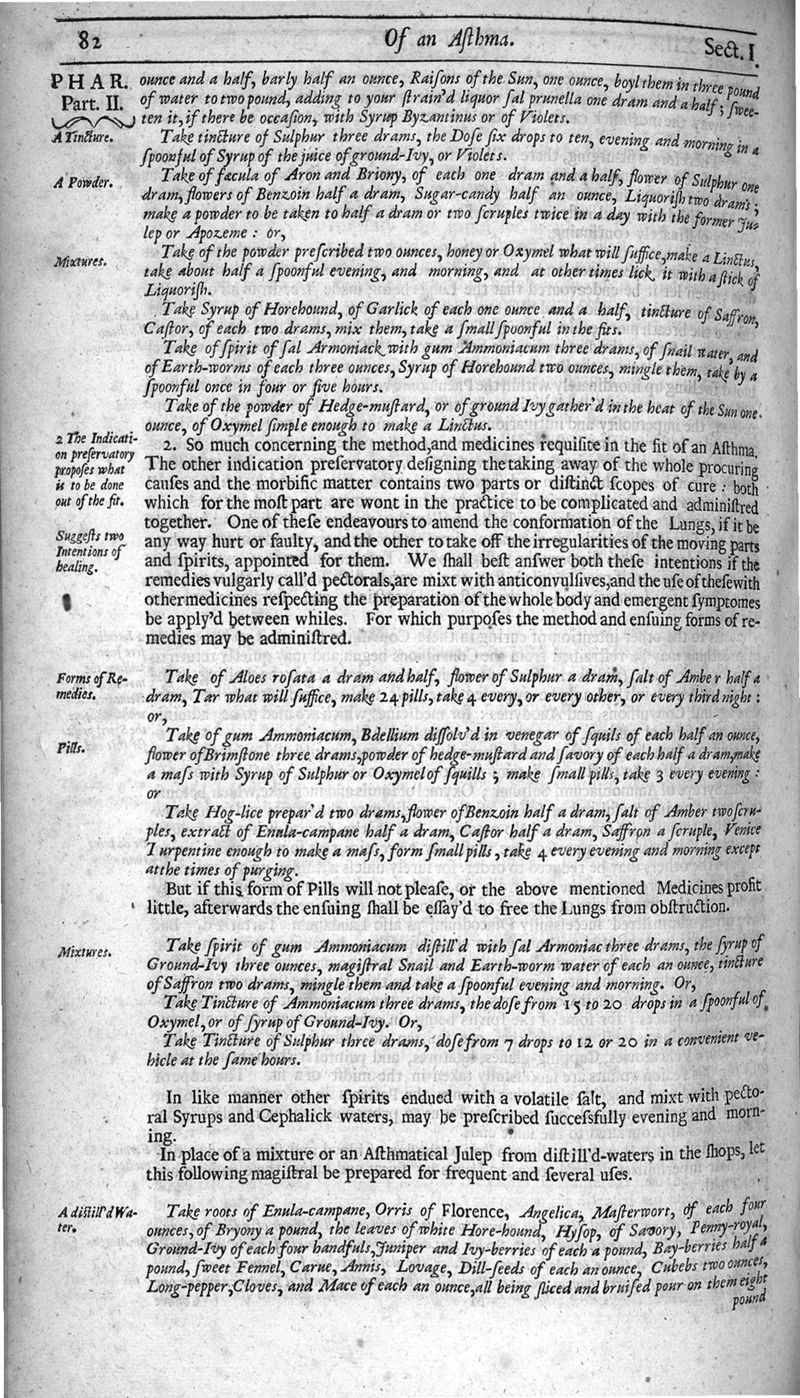 82 Of an Aſthma. Sect. I.
PHAR. Part. II.
ounce and a half, barly half an ounce, Raiſons of the Sun, one ounce, boyl them in three pound
of water to two pound, adding to your ſtrain'd liquor ſal prunella one dram and a half; ſwee-
ten it, if there be occaſion, with Syrup Byzantinus or of Violets.
A Tincture.
Take tincture of Sulphur three drams, the Doſe ſix drops to ten, evening and morning in a
ſpoonful of Syrup of the juice of ground-Ivy, or Violets.
A Powder.
Take of fæcula of Aron and Briony, of each one dram and a half, flower of Sulphur one
dram, flowers of Benzoin half a dram, Sugar-candy half an ounce, Liquoriſh two drams;
make a powder to be taken to half a dram or two ſcruples twice in a day with the former Ju-
lep or Apozeme: or,
Mixtures.
Take of the powder preſcribed two ounces, honey or Oxymel what will ſuffice, make a Linctus,
take about half a ſpoonful evening, and morning, and at other times lick it with a ſtick of
Liquoriſh.
Take Syrup of Horehound, of Garlick of each one ounce and a half, tincture of Saffron,
Caſtor, of each two drams, mix them, take a ſmall ſpoonful in the fits.
Take of ſpirit of ſal Armoniack with gum Ammoniacum three drams, of ſnail water, and
of Earth-worms of each three ounces, Syrup of Horehound two ounces, mingle them, take by a
ſpoonful once in four or five hours.
Take of the powder of Hedge-muſtard, or of ground Ivy gather'd in the heat of the Sun one
ounce, of Oxymel ſimple enough to make a Linctus.
2 The Indicati-
on preſervatory
propoſes what
is to be done
out of the fit.
2. So much concerning the method, and medicines requiſite in the fit of an Aſthma.
The other indication preſervatory deſigning the taking away of the whole procuring
cauſes and the morbific matter contains two parts or diſtinct ſcopes of cure: both
which for the moſt part are wont in the practice to be complicated and adminiſtred
together. One of theſe endeavours to amend the conformation of the Lungs, if it be
Suggeſts two
Intentions of
healing.
any way hurt or faulty, and the other to take off the irregularities of the moving parts
and ſpirits, appointed for them. We ſhall beſt anſwer both theſe intentions if the
remedies vulgarly call'd pectorals, are mixt with anticonvulſives, and the uſe of theſe with
other medicines reſpecting the preparation of the whole body and emergent ſymptomes
be apply'd between whiles. For which purpoſes the method and enſuing forms of re-
medies may be adminiſtred.
Forms of Re-
medies.
Take of Aloes roſata a dram and half, flower of Sulphur a dram, ſalt of Amber half a
dram, Tar what will ſuffice, make 24 pills, take 4 every, or every other, or every third night:
or,
Pills.
Take of gum Ammoniacum, Bdellium diſſolv'd in venegar of ſquils of each half an ounce,
flower of Brimſtone three drams, powder of hedge-muſtard and ſavory of each half a dram, make
a maſs with Syrup of Sulphur or Oxymel of ſquills; make ſmall pills, take 3 every evening:
or
Take Hog-lice prepar'd two drams, flower of Benzoin half a dram, ſalt of Amber two ſcru-
ples, extract of Enula-campane half a dram, Caſtor half a dram, Saffron a ſcruple, Venice
Turpentine enough to make a maſs, form ſmall pills, take 4 every evening and morning except
at the times of purging.
But if this form of Pills will not pleaſe, or the above mentioned Medicines profit
little, afterwards the enſuing ſhall be eſſay'd to free the Lungs from obſtruction.
Mixtures.
Take ſpirit of gum Ammoniacum diſtill'd with ſal Armoniac three drams, the ſyrup of
Ground-Ivy three ounces, magiſtral Snail and Earth-worm water of each an ounce, tincture
of Saffron two drams, mingle them and take a ſpoonful evening and morning. Or,
Take Tincture of Ammoniacum three drams, the doſe from 15 to 20 drops in a ſpoonful of
Oxymel, or of ſyrup of Ground-Ivy. Or,
Take Tincture of Sulphur three drams, doſe from 7 drops to 12 or 20 in a convenient ve-
hicle at the ſame hours.
In like manner other ſpirits endued with a volatile ſalt, and mixt with pecto-
ral Syrups and Cephalick waters, may be preſcribed ſucceſsfully evening and morn-
ing.
In place of a mixture or an Aſthmatical Julep from diſtill'd-waters in the ſhops, let
this following magiſtral be prepared for frequent and ſeveral uſes.
A diſtill'd Wa-
ter.
Take roots of Enula-campane, Orris of Florence, Angelica, Maſterwort, of each four
ounces, of Bryony a pound, the leaves of white Hore-hound, Hyſop, of Savory, Penny-royal,
Ground-Ivy of each four handfuls, Juniper and Ivy-berries of each a pound, Bay-berries half a
pound, ſweet Fennel, Carue, Annis, Lovage, Dill-ſeeds of each an ounce, Cubebs two ounces,
Long-pepper, Cloves, and Mace of each an ounce, all being ſliced and bruiſed pour on them eight
pound